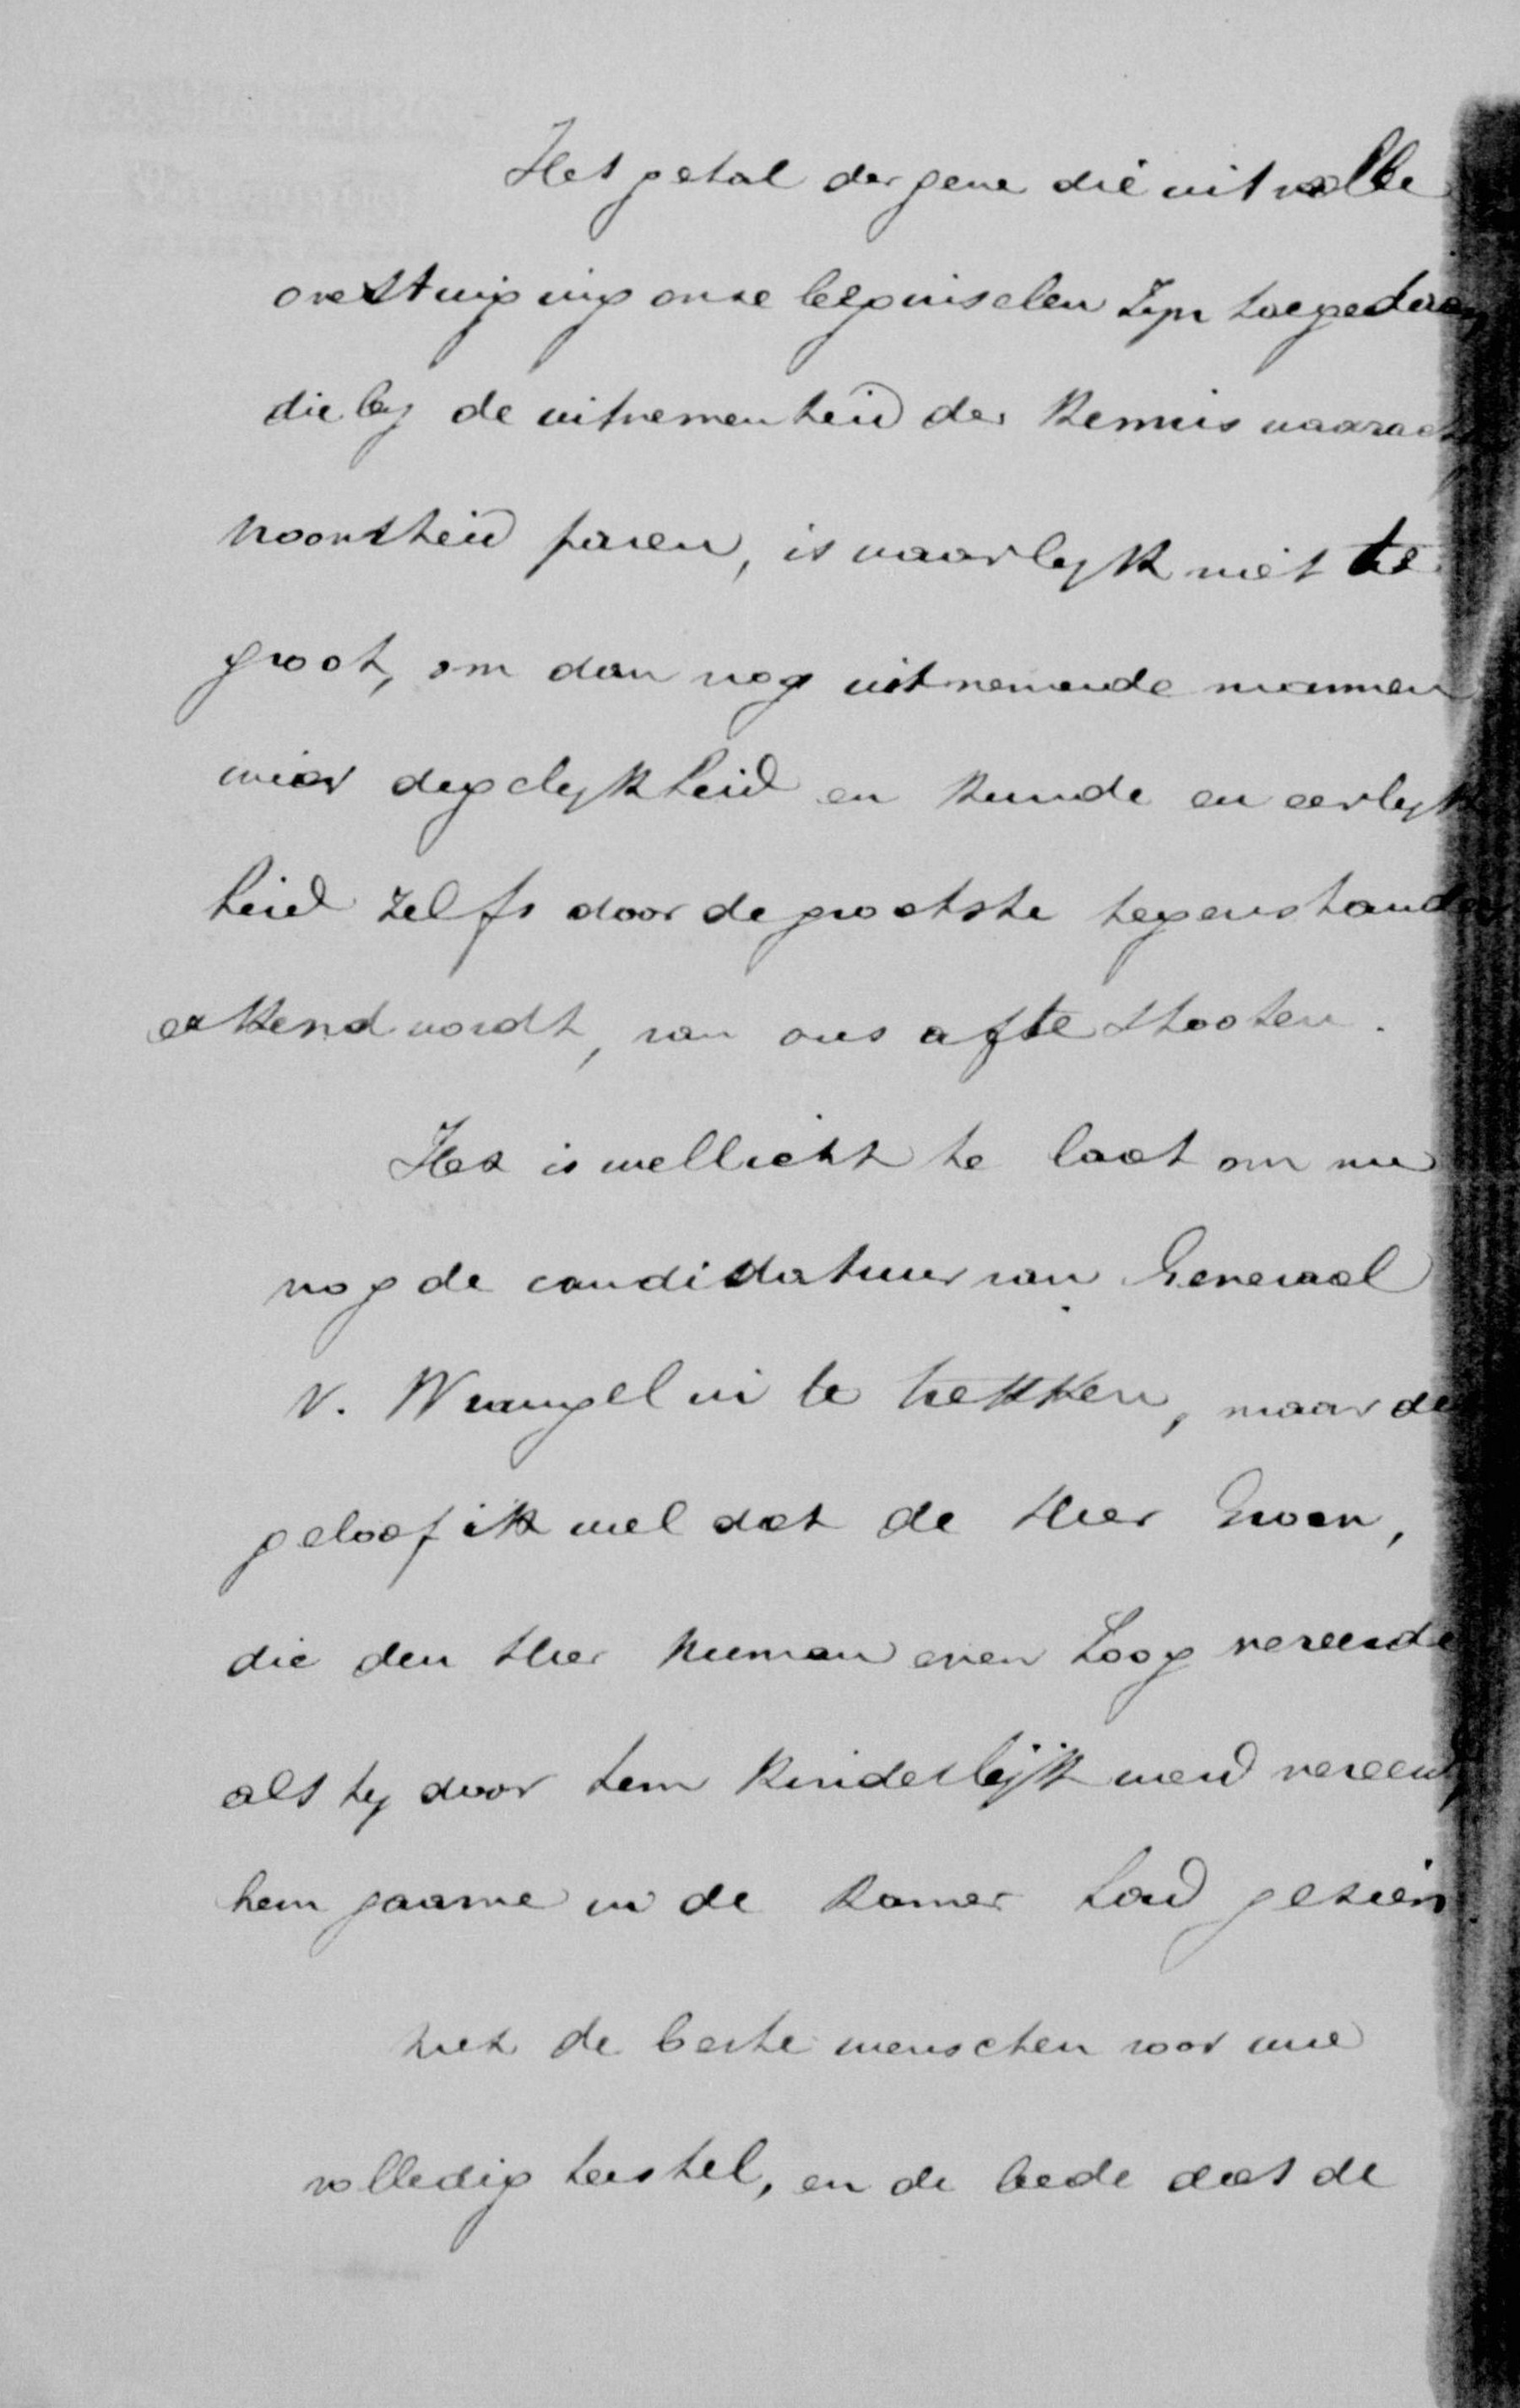 Het getal der gene die uit volle
overtuiging onze beginselen zyn toegedaan
die by de uitnementheid der kennis
paren, is waarlyk niet te
groot, om dan nog uitnemende mannen
wier degelykheid en kunde en eerlyk
heid zelfs door de grootste tegenstander
erkend wordt, van ons afte stooten.
Het is wellicht te laat om nu
nog de candidatuur van Generaal
v. Wrangel in te trekken, maar de
geloof ik wel dat de Heer Groen,
die den Heer even hoog vereerde
als hy door hem kinderlijk werd vereerd,
hem gaarne in de kamer had gezien.
Met de beste menschen voor uwe
volledig herstel, en de bede dat de